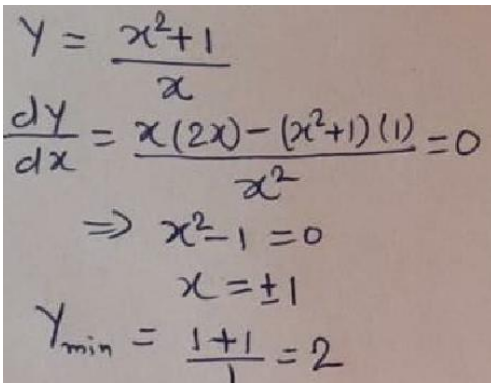 Y = x²+1 / x
dy/dx = x(2x)-(x²+1)(1) / x² = 0
⇒ x²-1 = 0
x = ±1
Ymin = 1+1 / 1 = 2